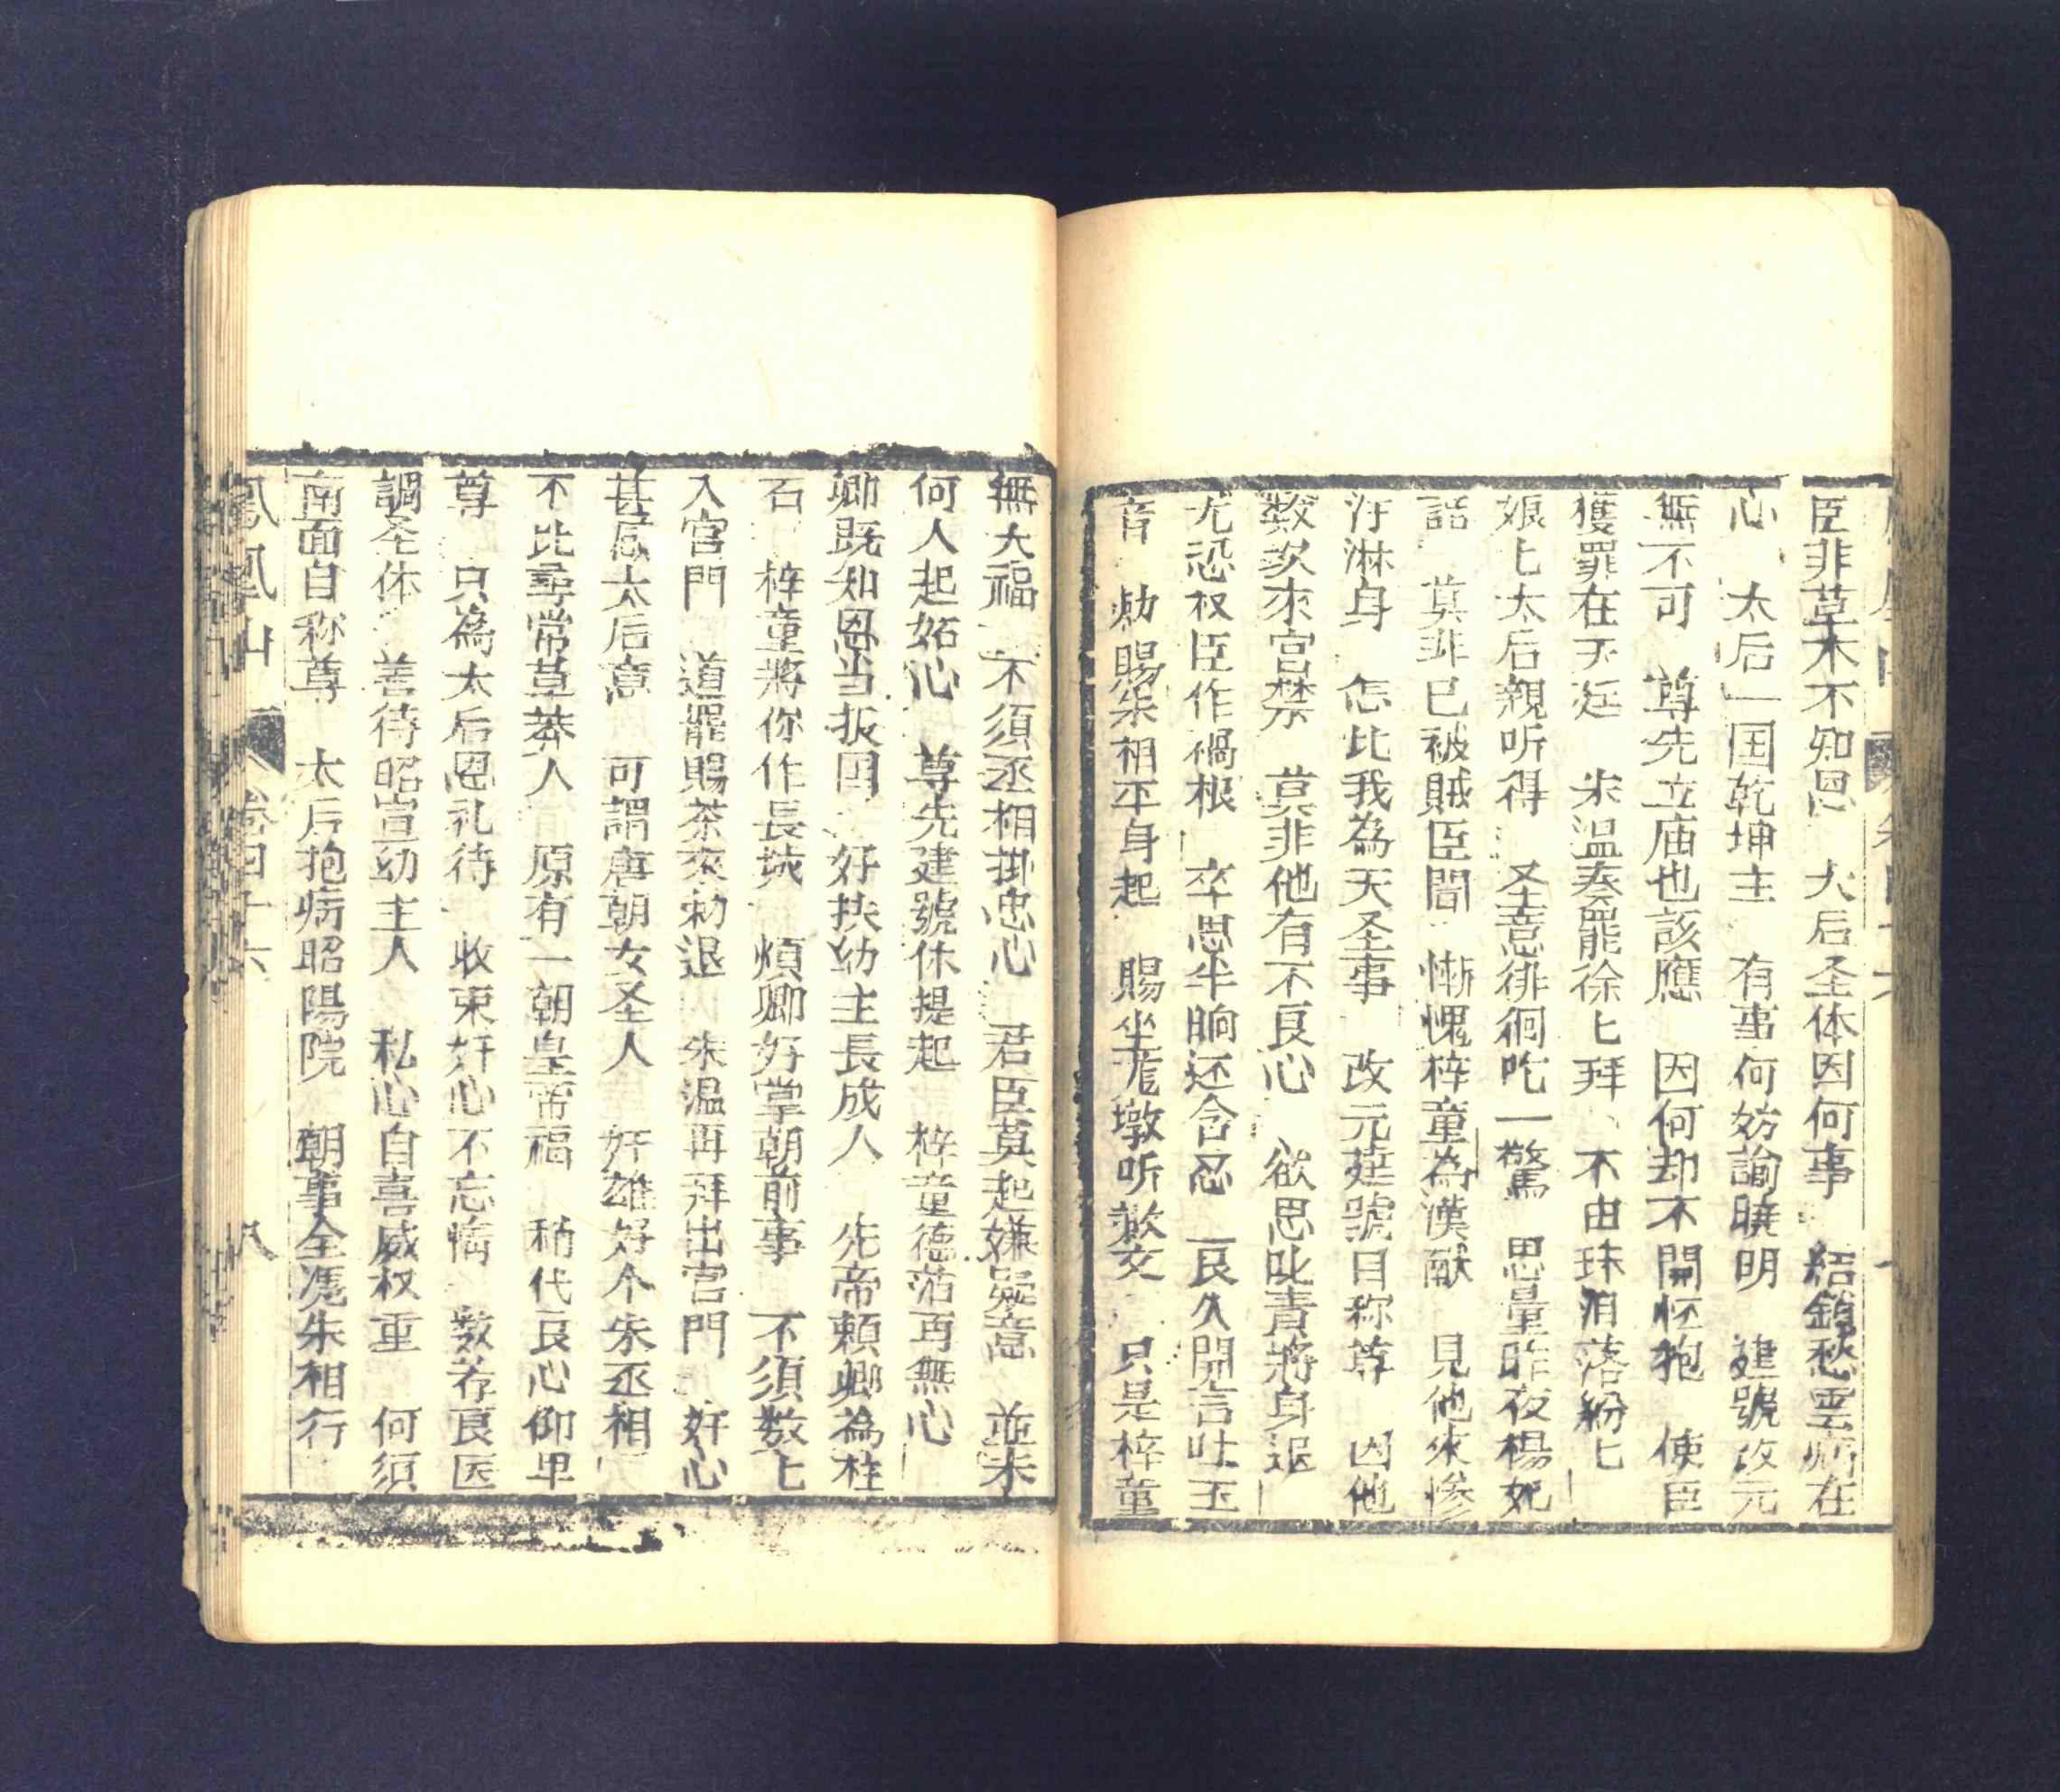 臣非草木不知恩　太后圣体因何事　結鎖愁雲病在
心　太后一国乾坤主　有事何妨諭曉明　建號改元
無不可　尊先立庙也該應　因何却不開怀抱　使臣
獲罪在天廷　朱温奏罷徐匕拜　不由珠泪落紛匕
娘匕太后親听得　圣意徘徊吃一驚　思量昨夜楊妃
話　莫非已被賊臣聞　慚愧梓童為漢献　見他來惨
汗淋身　怎比我為天圣事　改元建號自称尊　因他
数次來宮禁　莫非他有不良心　欲思叱責將身退
尤恐权臣作禍根　卒思半晌还含忍　良久開言吐玉
音　勅賜朱相平身起　賜坐龙墩听欸文　只是梓童
無大福　不須丞相掛忠心　君臣莫起嫌疑意　並未
何人起妬心　尊先建號休提起　梓童德菲再無心
卿既知恩当扳囯　好扶幼主長成人　先帝賴卿為柱
石　梓童將你作長城　煩卿好掌朝前事　不須数匕
入宮門　道罷賜茶來勅退　朱温再拜出宮門　奸心
甚感太后意　可謂唐朝女圣人　奸雄好个朱丞相
不比尋常草莽人　原有一朝皇帝福　稍代良心仰畢
尊　只為太后恩礼待　收束奸心不忘情　数荐良医
調圣体　善待昭宣幼主人　私心自喜威权重　何須
南面自称尊　太后抱病昭陽院　朝事全凭朱相行
鳳凰山　卷四十六　八